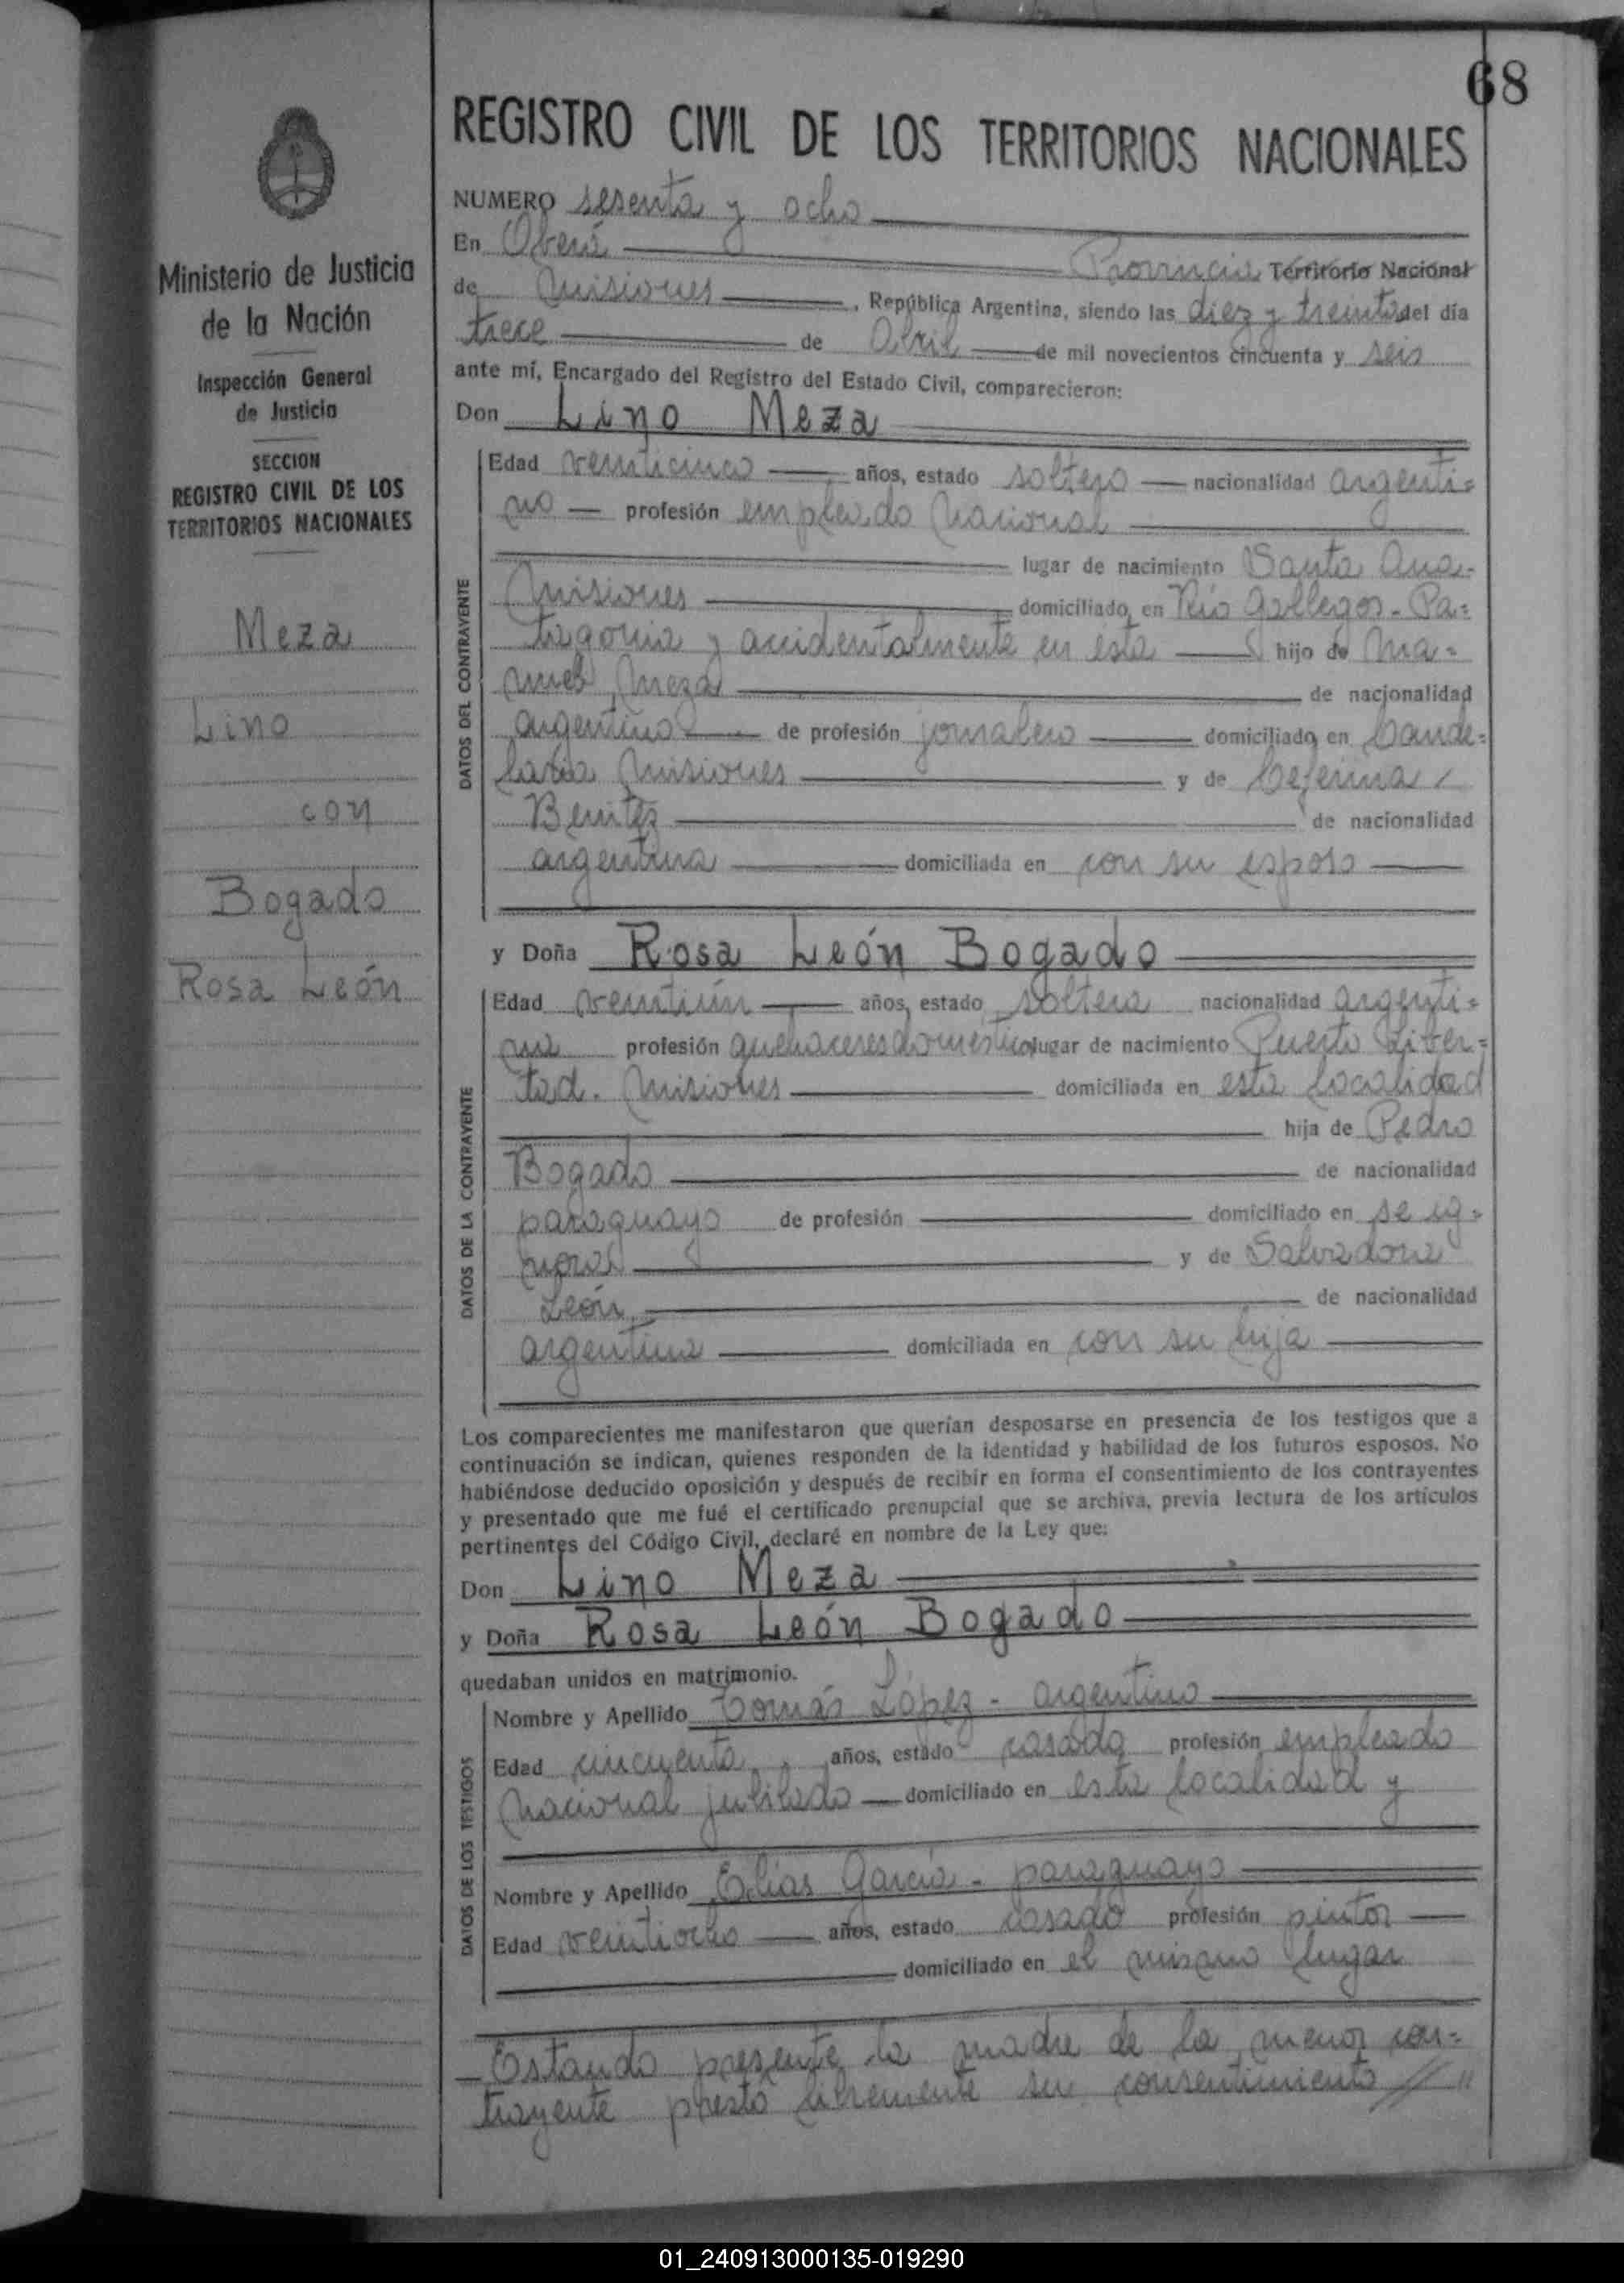 68
REGISTRO CIVIL DE LOS TERRITORIOS NACIONALES
Ministerio de Justicia
de la Nación
Inspección General
de Justicia
SECCION
REGISTRO CIVIL DE LOS
TERRITORIOS NACIONALES
Meza
Lino
con
Bogado
Rosa León
NUMERO sesenta y ocho
En Oberá Provincia Territorio Nacional
de Misiones, República Argentina, siendo las diez y treinta del día
trece de Abril de mil novecientos cincuenta y seis
ante mí, Encargado del Registro del Estado Civil, comparecieron:
Don Lino Meza
DATOS DEL CONTRAYENTE
Edad veinticinco años, estado soltero nacionalidad argenti=
no profesión empleado Nacional
lugar de nacimiento Santa Ana-
Misiones domiciliado en Río Gallegos - Pa=
tagonia y accidentalmente en esta hijo de Ma=
nuel Meza de nacionalidad
argentino de profesión jornalero domiciliado en Cande=
laria Misiones y de Ceferina
Benitez de nacionalidad
argentina domiciliada en con su esposo
y Doña Rosa León Bogado
DATOS DE LA CONTRAYENTE
Edad veintiún años, estado soltera nacionalidad argenti=
na profesión quehaceres domestico lugar de nacimiento Puerto Liber=
tad. Misiones domiciliada en esta localidad
hija de Pedro
Bogado de nacionalidad
paraguayo de profesión domiciliado en se ig=
nora y de Salvadora
León de nacionalidad
argentina domiciliada en con su hija
Los comparecientes me manifestaron que querían desposarse en presencia de los testigos que a
continuación se indican, quienes responden de la identidad y habilidad de los futuros esposos. No
habiéndose deducido oposición y después de recibir en forma el consentimiento de los contrayentes
y presentado que me fué el certificado prenupcial que se archiva, previa lectura de los artículos
pertinentes del Código Civil, declaré en nombre de la Ley que:
Don Lino Meza
y Doña Rosa León Bogado
quedaban unidos en matrimonio.
DATOS DE LOS TESTIGOS
Nombre y Apellido Tomás López - argentino
Edad cincuenta años, estado casado profesión empleado
Nacional jubilado domiciliado en esta localidad y
Nombre y Apellido Elias García - paraguayo
Edad veintiocho años, estado casado profesión pintor
domiciliado en el mismo lugar
Estando presente la madre de la menor con=
trayente prestó libremente su consentimiento // "
01_240913000135-019290